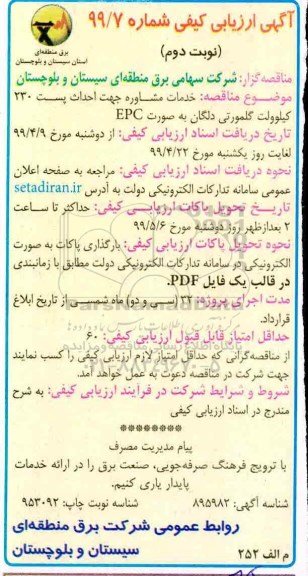 آگهی ارزیابی کیفی شماره ۹۹/۷
(نوبت دوم)
برق منطقه‌ای
استان سیستان و بلوچستان
مناقصه‌گزار: شرکت سهامی برق منطقه‌ای سیستان و بلوچستان
موضوع مناقصه: خدمات مشاوره جهت احداث پست ۲۳۰
کیلوولت گلمورتی دلگان به صورت EPC
تاریخ دریافت اسناد ارزیابی کیفی: از دوشنبه مورخ ۹۹/۴/۹
لغایت روز یکشنبه مورخ ۹۹/۴/۲۲
نحوه دریافت اسناد ارزیابی کیفی: مراجعه به صفحه اعلان
عمومی سامانه تدارکات الکترونیکی دولت به آدرس setadiran.ir
تاریخ تحویل پاکات ارزیابی کیفی: حداکثر تا ساعت
۲ بعدازظهر روز دوشنبه مورخ ۹۹/۵/۶
نحوه تحویل پاکات ارزیابی کیفی: بارگذاری پاکات به صورت
الکترونیکی در سامانه تدارکات الکترونیکی دولت مطابق با زمانبندی
در قالب یک فایل PDF.
مدت اجرای پروژه: ۳۲ (سی و دو) ماه شمسی از تاریخ ابلاغ
قرارداد.
حداقل امتیاز قابل قبول ارزیابی کیفی: ۶۰
از مناقصه‌گرانی که حداقل امتیاز لازم ارزیابی کیفی را کسب نمایند
جهت شرکت در مناقصه دعوت به عمل خواهد آمد.
شروط و شرایط شرکت در فرایند ارزیابی کیفی: به شرح
مندرج در اسناد ارزیابی کیفی
********
پیام مدیریت مصرف
با ترویج فرهنگ صرفه‌جویی، صنعت برق را در ارائه خدمات
پایدار یاری کنیم.
شناسه آگهی: ۸۹۵۹۸۲ شناسه نوبت چاپ: ۹۵۳۰۹۲
روابط عمومی شرکت برق منطقه‌ای
سیستان و بلوچستان
م الف ۲۵۲